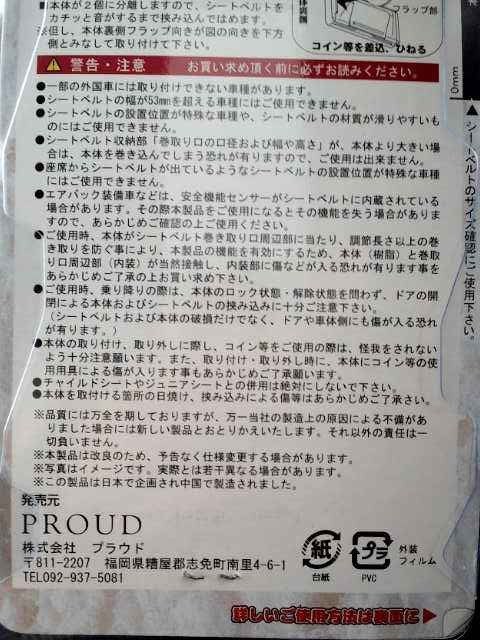 ■本体が2個に分離しますので、シートベルトを
カチッと音がするまで挟み込んではめます。
※但し、本体裏側フラップ向きが図の向きを下方
側とみなして取り付けて下さい。
フラップ部
コイン等を差込、ひねる
警告・注意 お買い求め頂く前に必ずお読みください。
●一部の外国車には取り付けできない車種があります。
●シートベルトの幅が53mmを超える車種にはご使用できません。
●シートベルトの設置位置が特殊な車種や、シートベルトの材質が滑りやすいも
のにはご使用できません。
●シートベルト収納部「巻取り口の口径および幅や高さ」が、本体より大きい場
合は、本体を巻き込んでしまう恐れが有りますので、ご使用は出来ません。
●座席からシートベルトが出ているようなシートベルトの設置位置が特殊な車種
にはご使用できません。
●エアバック装備車などは、安全機能センサーがシートベルトに内蔵されている
場合があります。その際本製品をご使用になるとその機能を失う場合がありま
すので、あらかじめご確認の上ご使用ください。
●ご使用時、本体がシートベルト巻き取り口周辺部に当たり、調節長さ以上の巻
き取りを防ぐ事により、本製品の機能を有効にするため、本体（樹脂）と巻取
り口周辺部（内装）が当然接触し、内装部に傷などが入る恐れが有ります事を
あらかじめご了承の上お買い求め下さい。
●ご使用時、乗り降りの際は、本体のロック状態・解除状態を問わず、ドアの開
閉による本体およびシートベルトの挟み込みに十分ご注意下さい。
（シートベルトおよび本体の破損だけでなく、ドアや車体側にも傷が入る恐れ
が有ります。）
●本体の取り付け、取り外しに際し、コイン等をご使用の際は、怪我をされない
よう十分注意願います。また、取り付け・取り外し時に、本体にコイン等の使
用用具による傷が入ります事もあらかじめご了承願います。
●チャイルドシートやジュニアシートとの併用は絶対にしないで下さい。
●本体を取付ける箇所の日焼け、挟み込みによる傷等はあらかじめご了承下さい。
※品質には万全を期しておりますが、万一当社の製造上の原因による不備があ
りました場合には新しい製品とおとりかえいたします。それ以外の責任は一
切負いません。
※本製品は改良のため、予告なく仕様変更する場合があります。
※写真はイメージです。実際とは若干異なる場合があります。
※この製品は日本で企画され中国で製造されました。
発売元
PROUD
株式会社 プラウド
〒811-2207 福岡県糟屋郡志免町南里4-6-1
TEL092-937-5081
紙
台紙
プラ
PVC
外装
フィルム
詳しいご使用方法は裏面に▶
0mm
▲シートベルトのサイズ確認にご使用下さい。